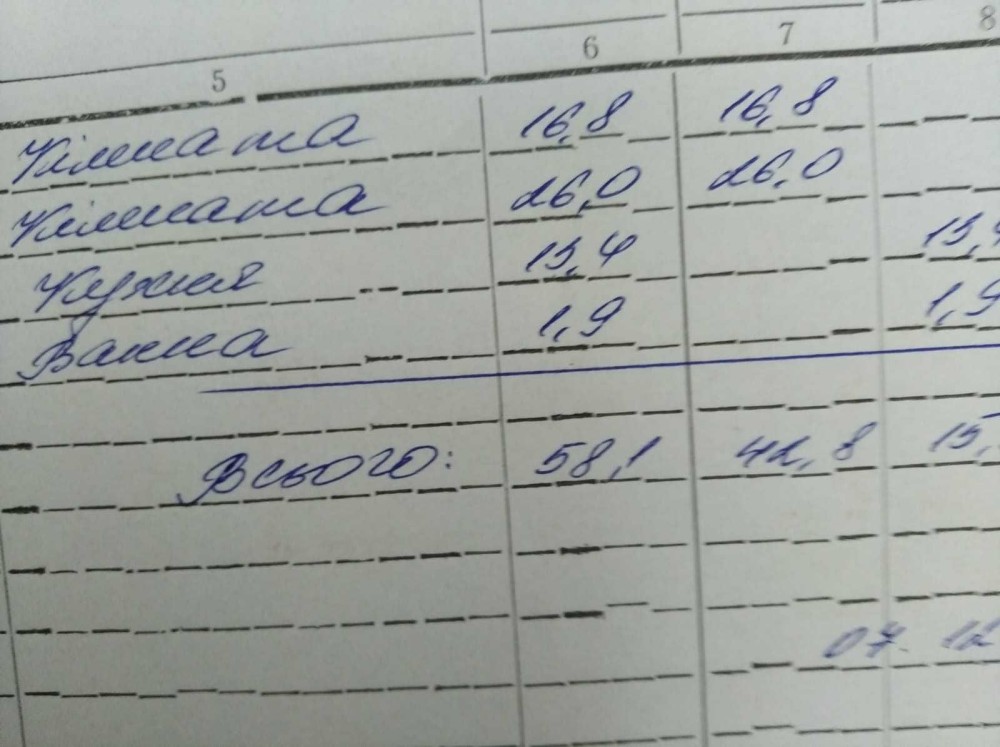 5 6 7 8
Кімната 16,8 16,8
Кімната 26,0 26,0
Кухня 13,4 13,4
Ванна 1,9 1,9
Всього: 58,1 42,8 15,
07. 12